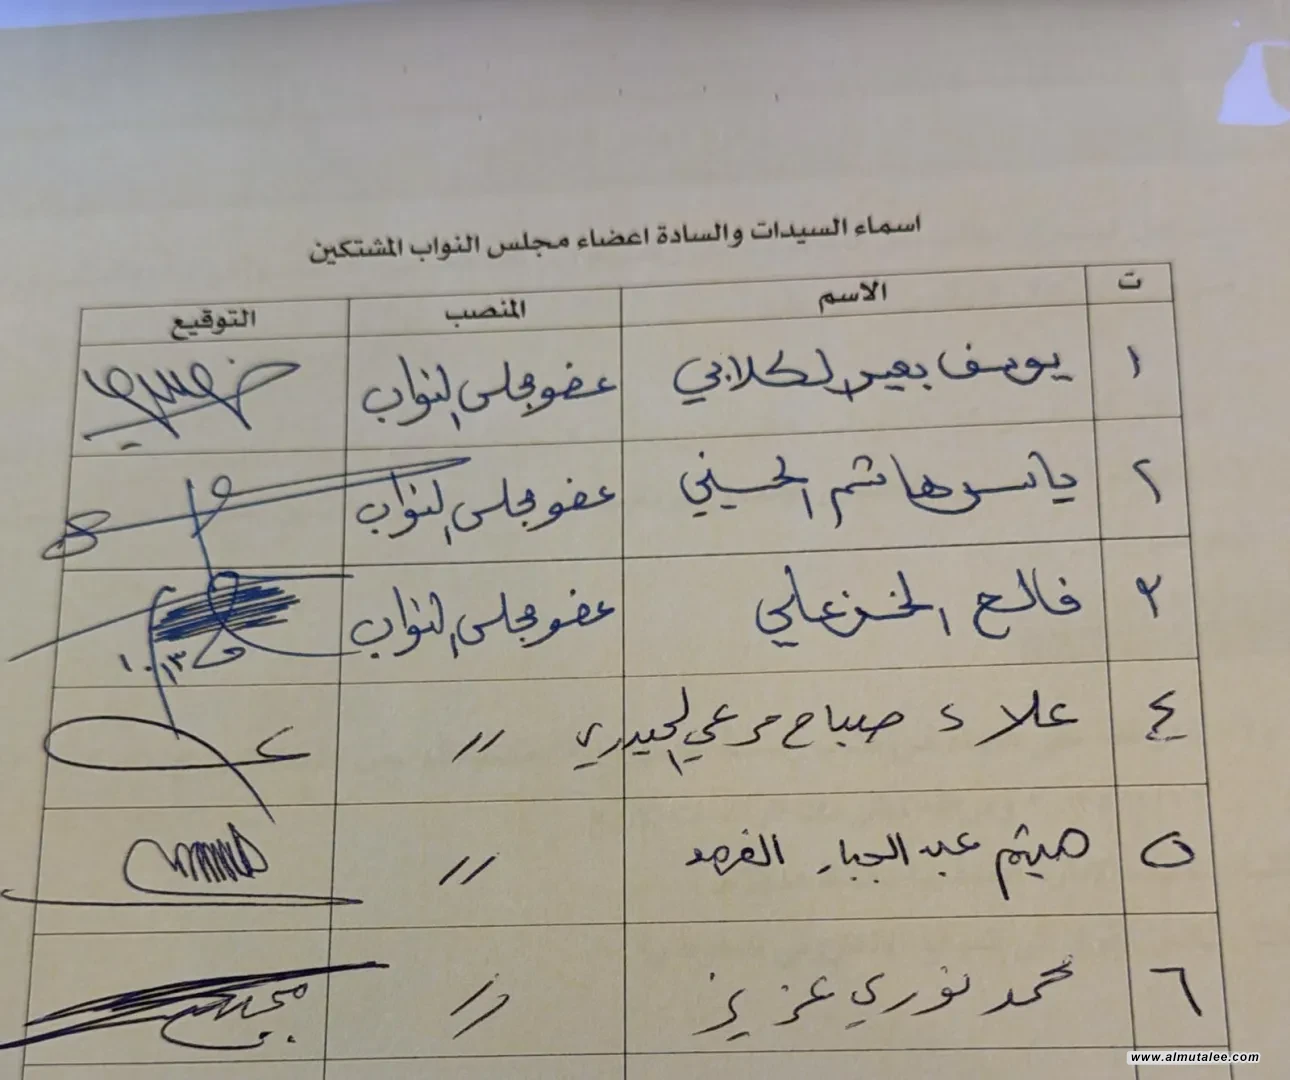 اسماء السيدات والسادة اعضاء مجلس النواب المشتكين
ت الاسم المنصب التوقيع
١ يوسف بعير الكلابي عضو مجلس النواب
٢ ياسر هاشم الحسيني عضو مجلس النواب
٣ فالح الخزعلي عضو مجلس النواب
٤ علاء صباح مرعي الحيدري //
٥ ميثم عبد الجبار الفهد //
٦ محمد نوري عزيز //
www.almutalee.com